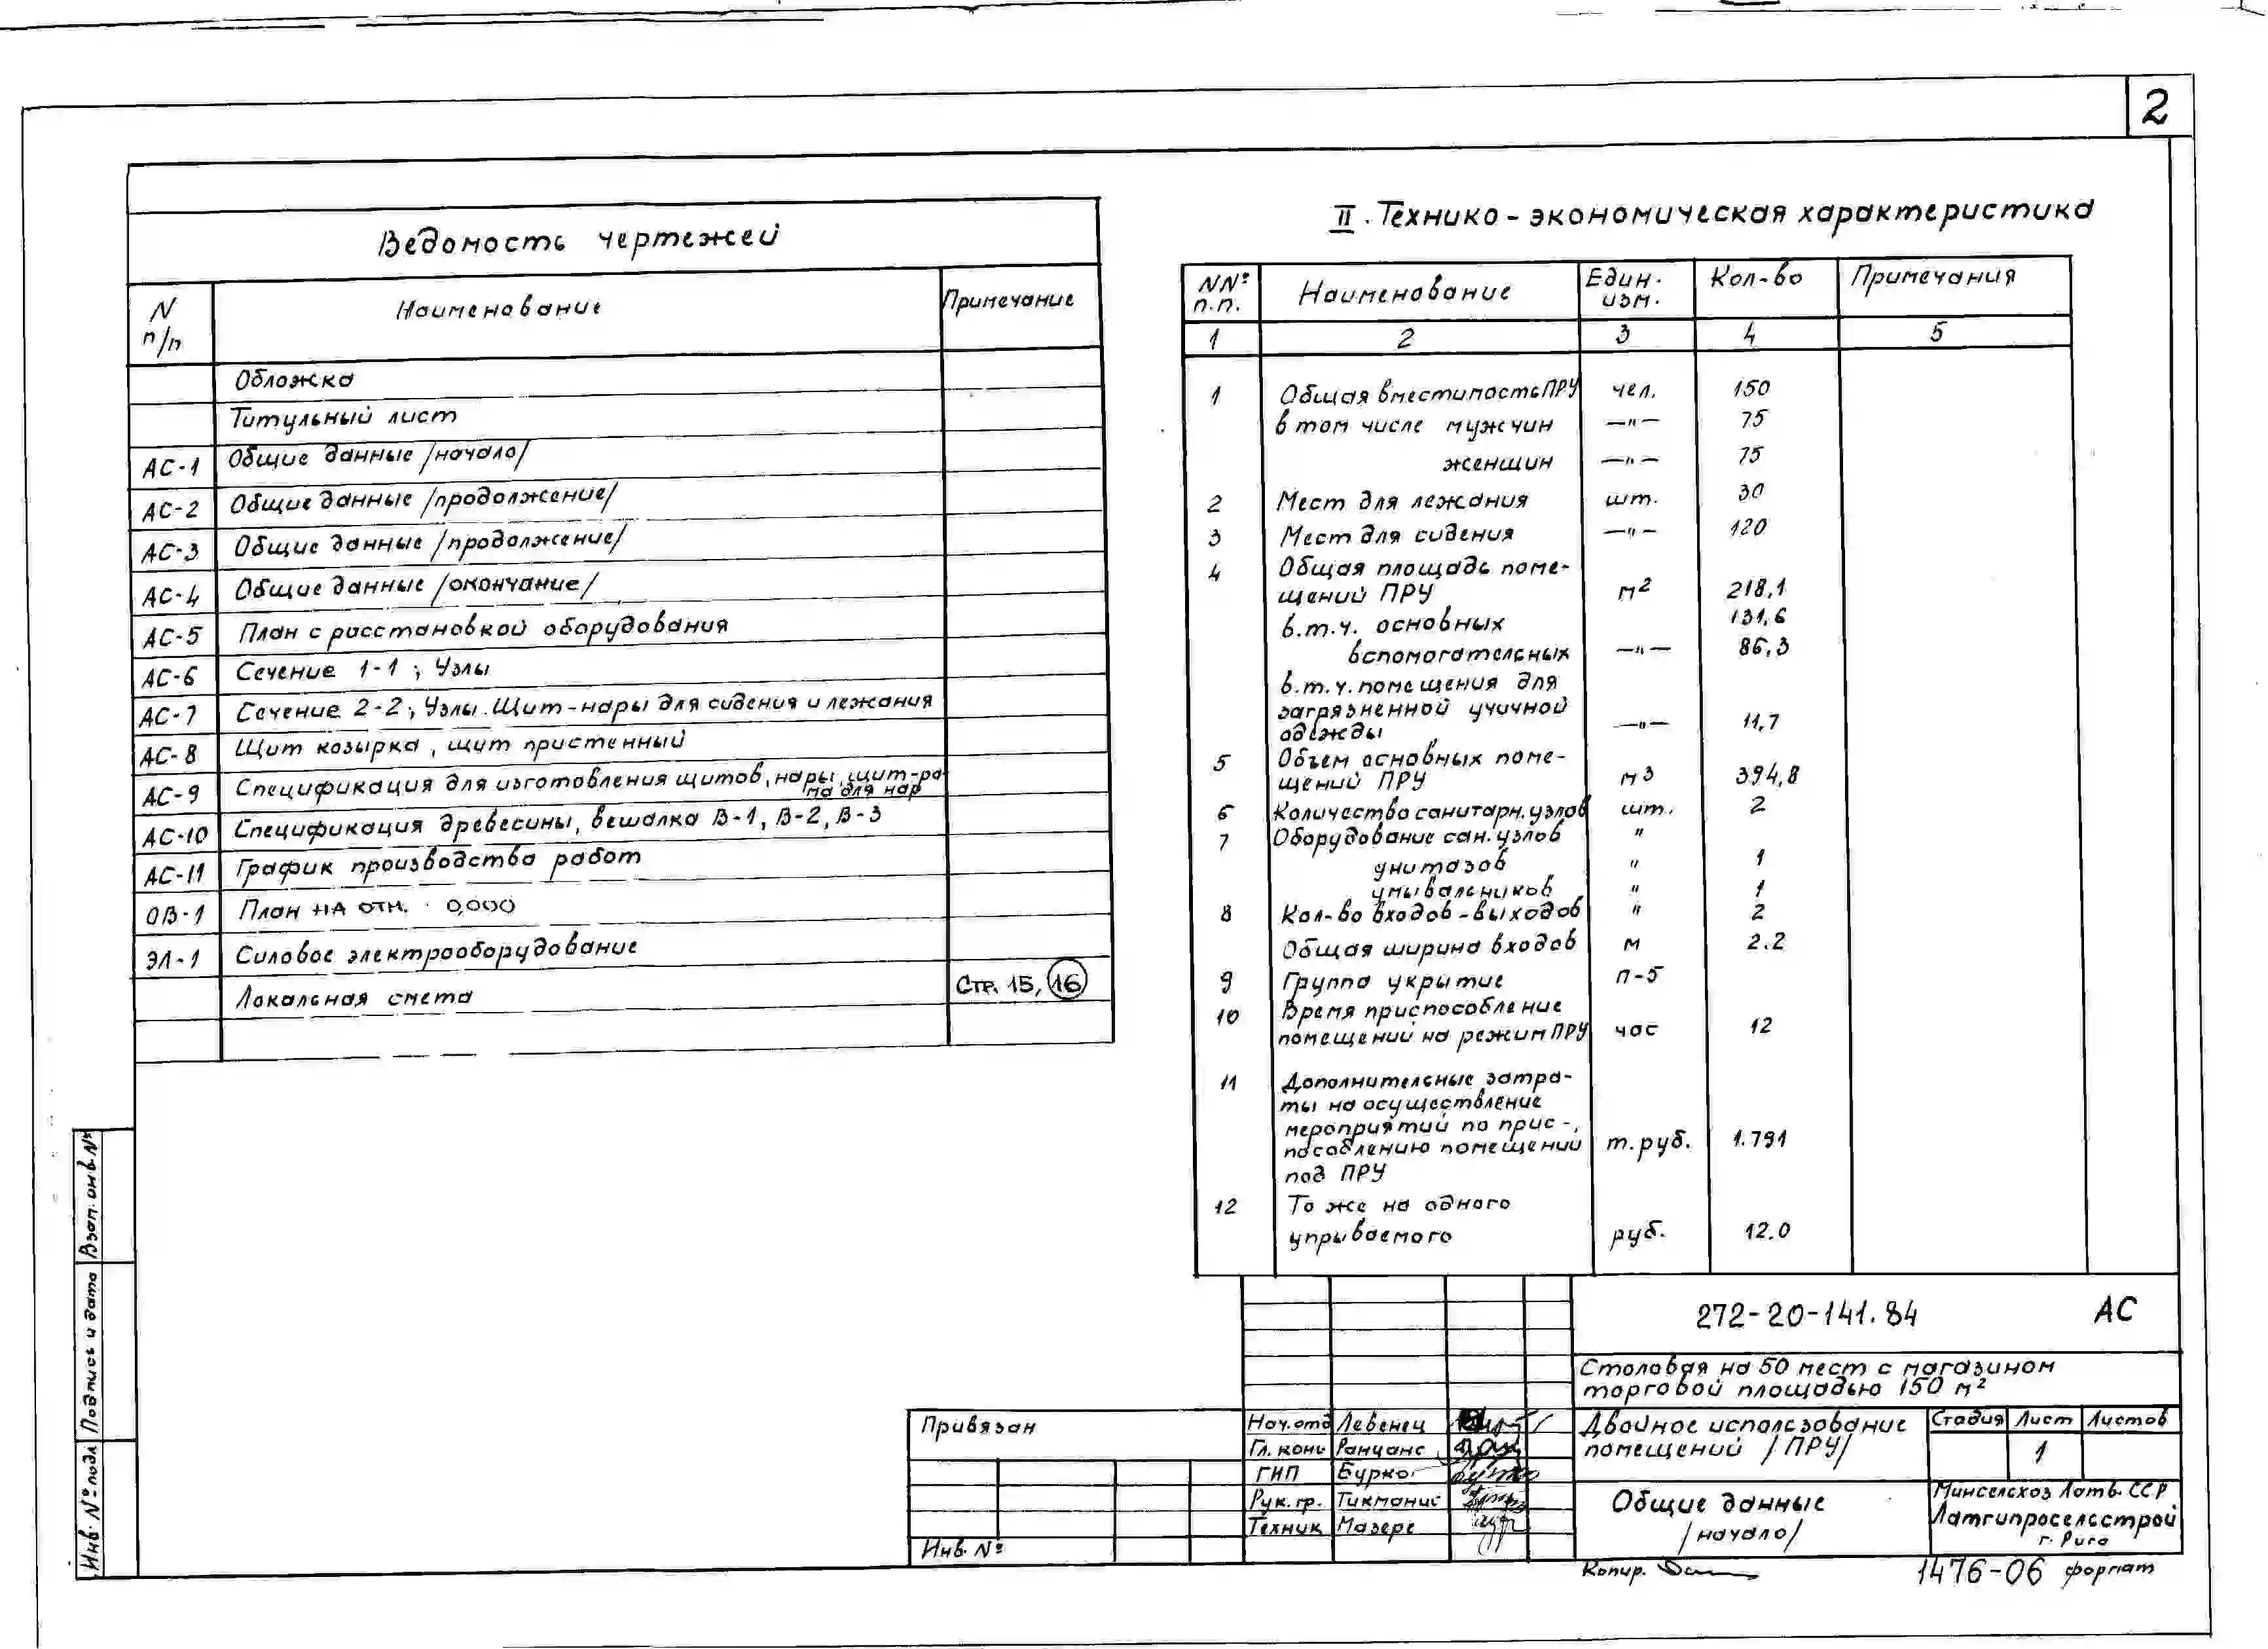 2
Ведомость чертежей
N п/п Наименование Примечание
Обложка
Титульный лист
АС-1 Общие данные /начало/
АС-2 Общие данные /продолжение/
АС-3 Общие данные /продолжение/
АС-4 Общие данные /окончание/
АС-5 План с расстановкой оборудования
АС-6 Сечение 1-1; Узлы
АС-7 Сечение 2-2; Узлы. Щит-нары для сидения и лежания
АС-8 Щит козырка, щит пристенный
АС-9 Спецификация для изготовления щитов, нары, щит-ра-
ма для нар
АС-10 Спецификация древесины, вешалка В-1, В-2, В-3
АС-11 График производства работ
ОВ-1 План на отм. 0,000
ЭЛ-1 Силовое электрооборудование
Локальная смета Стр. 15, 16
II. Технико-экономическая характеристика
NNº п.п. Наименование Един. изм. Кол-во Примечания
1 2 3 4 5
1 Общая вместимость ПРУ чел. 150
в том числе мужчин —"— 75
женщин —"— 75
2 Мест для лежания шт. 30
3 Мест для сидения —"— 120
4 Общая площадь поме-
щений ПРУ м2 218,1
в.т.ч. основных 131,6
вспомогательных —"— 86,3
в.т.ч. помещения для
загрязненной учичной
одежды —"— 11,7
5 Объем основных поме-
щений ПРУ м3 394,8
6 Количество санитарн. узлов шт. 2
7 Оборудование сан. узлов "
унитазов " 1
умывальников " 1
8 Кол-во входов-выходов " 2
Общая ширина входов м 2.2
9 Группа укрытие п-5
10 Время приспособление
помещений на режим ПРУ час 12
11 Дополнительные затра-
ты на осуществление
мероприятий по прис-
пособлению помещений т.руб. 1.791
под ПРУ
12 То же на одного
упрываемого руб. 12.0
272-20-141.84 АС
Столовая на 50 мест с магазином
торговой площадью 150 м2
Двойное использование
помещений /ПРУ/
Стадия Лист Листов
1
Общие данные
/начало/
Минсельхоз Латв. ССР
Латгипросельстрой
г. Рига
Нач. отд Левенец
Гл. конс Ранцанс
ГИП Бурко
Рук. гр. Тикманис
Техник Мазере
Привязан
Инв. Nº
Взам. инв Nº
Подпись и дата
Инв. Nº подл
Копир.
1476-06 формат